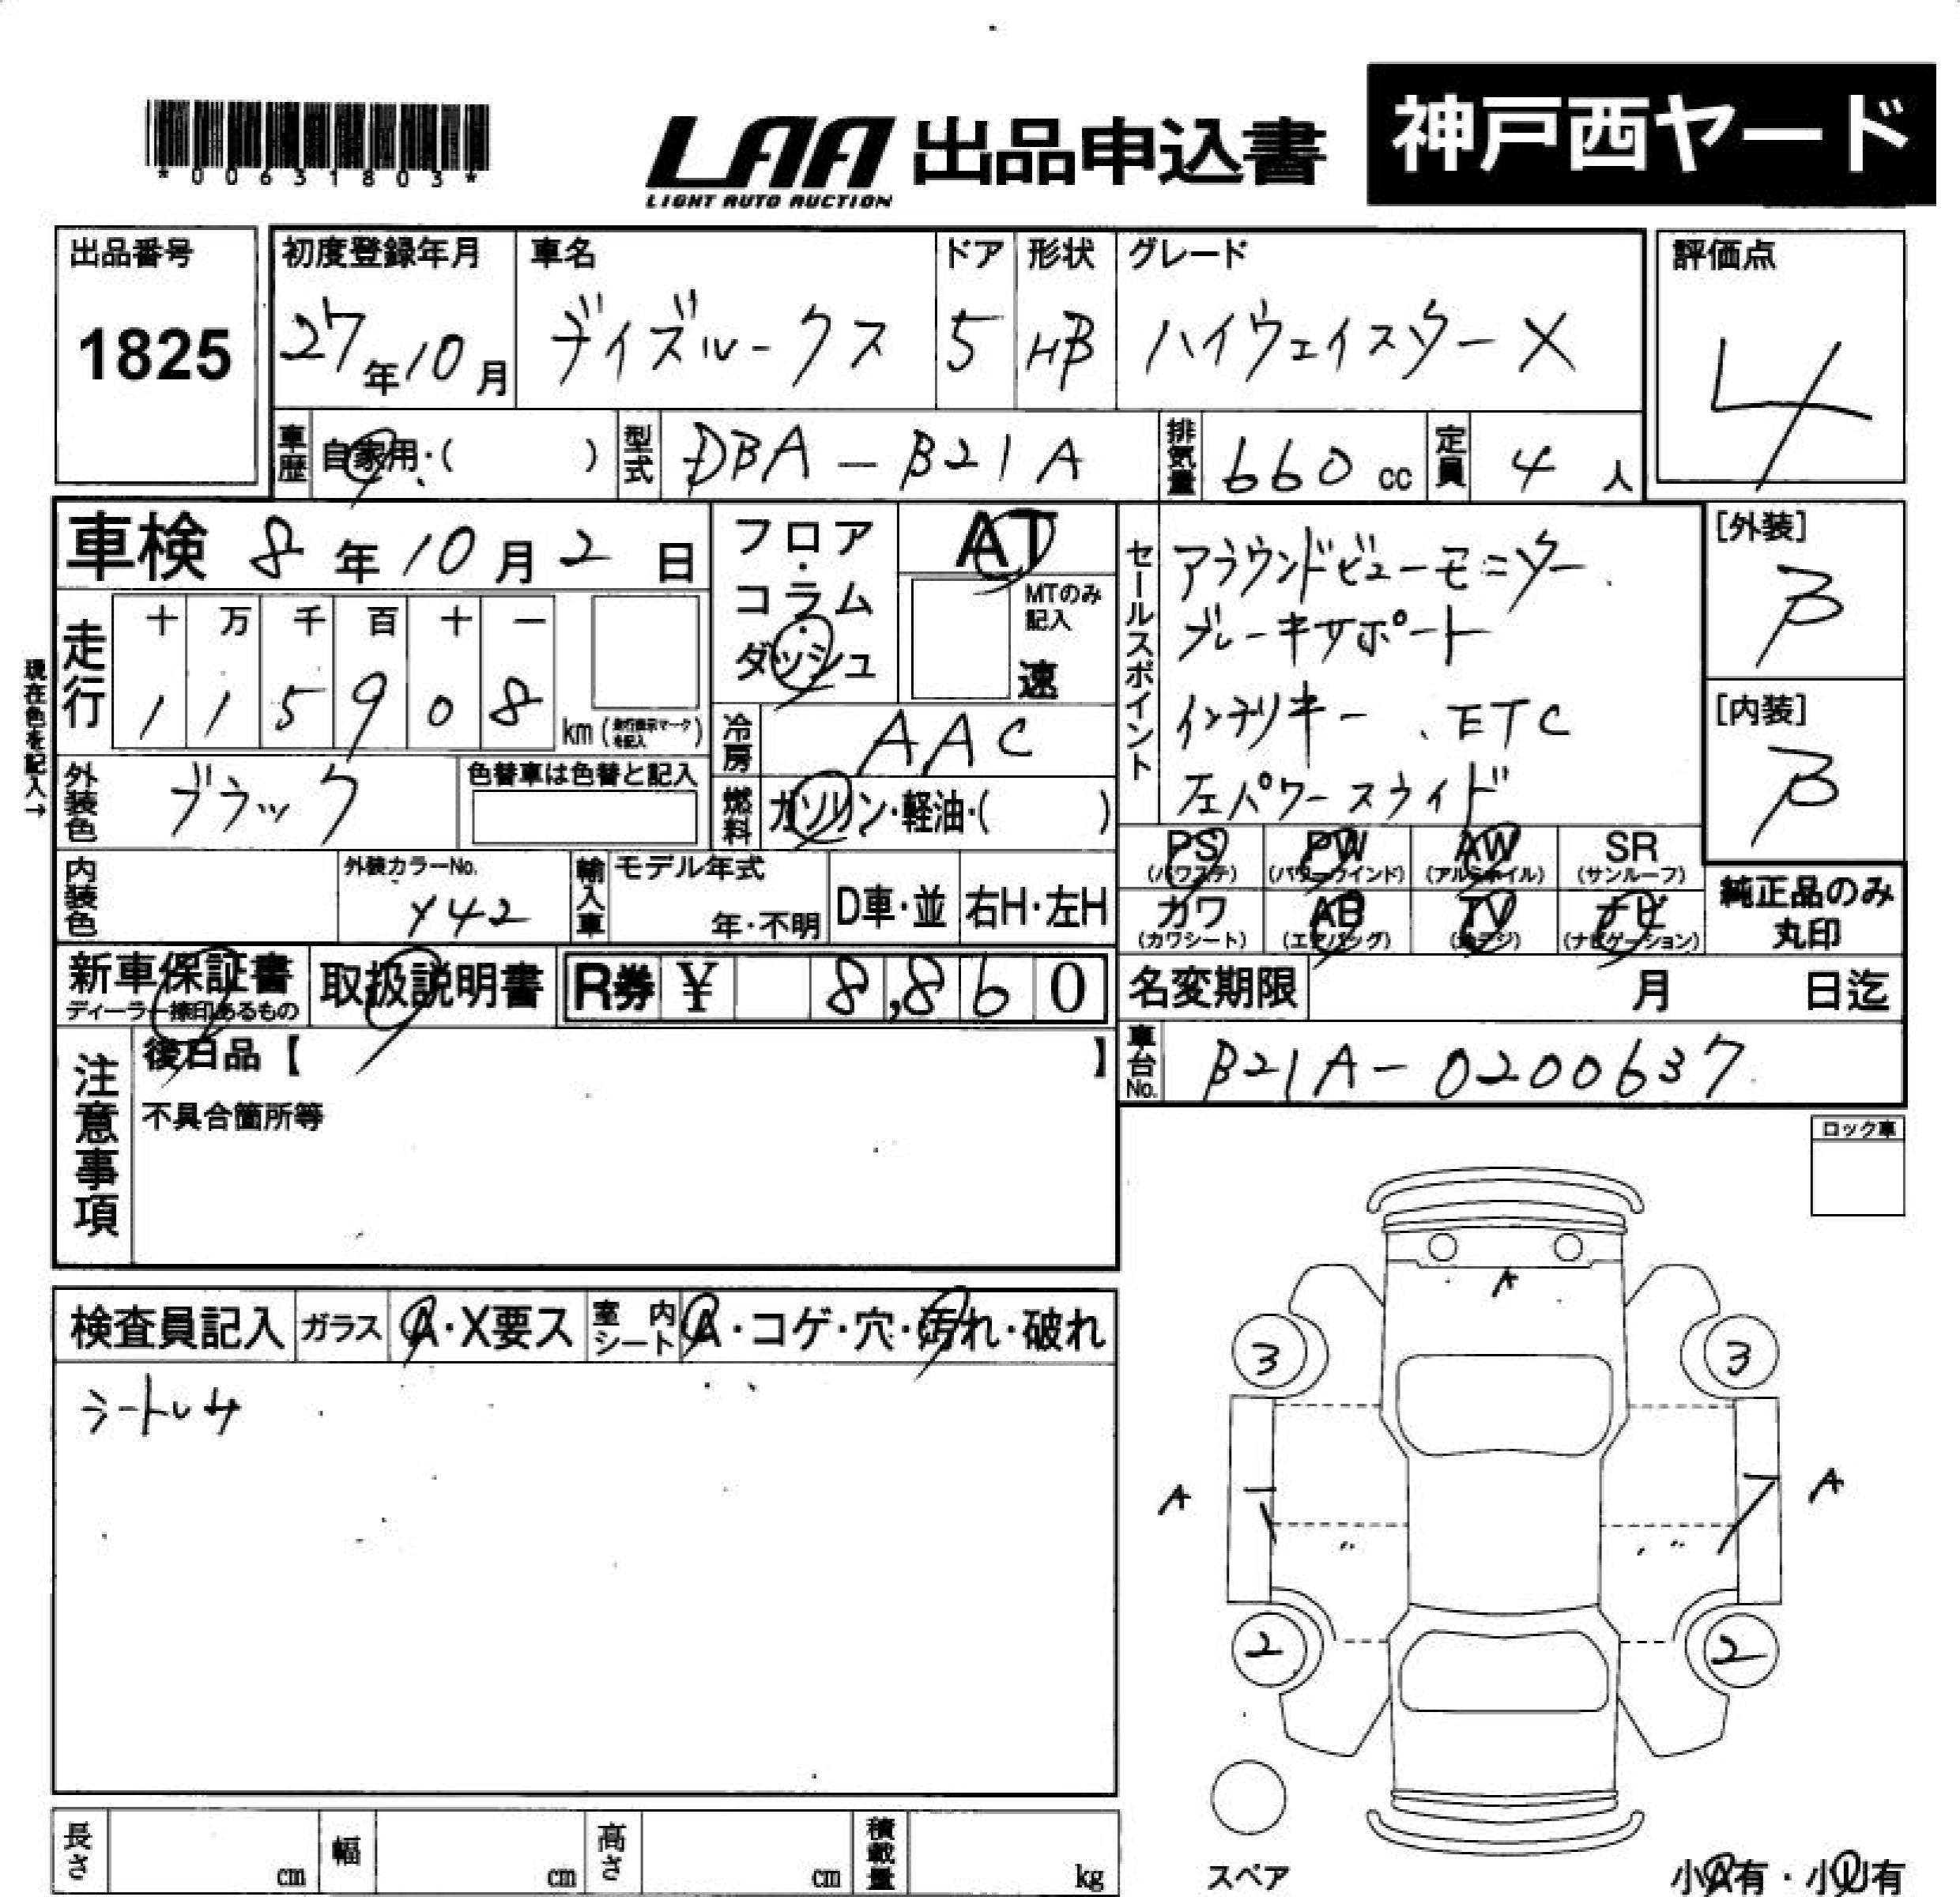 *00631803*
LAA 出品申込書
LIGHT AUTO AUCTION
神戸西ヤード
出品番号
1825
初度登録年月
27年10月
車名
デイズルークス
ドア
5
形状
HB
グレード
ハイウェイスターX
評価点
4
車歴
自家用・( )
型式
DBA-B21A
排気量
660cc
定員
4人
車検 8年10月2日
現在色を記入→
走行
十 万 千 百 十 一
1 1 5 9 0 8
km
フロア・
コラム・
ダッシュ
AT
MTのみ
記入
速
冷房
AAC
燃料
ガソリン・軽油・( )
外装色
ブラック
色替車は色替と記入
内装色
外装カラーNo.
Y42
輸入車
モデル年式
年・不明
D車・並
右H・左H
セールスポイント
アラウンドビューモニター
ブレーキサポート
インテリキー、ETC
左パワースライド
[外装]
B
[内装]
B
PS
(パワステ)
PW
(パワーウインド)
AW
(アルミホイル)
SR
(サンルーフ)
カワ
(カワシート)
AB
(エアバッグ)
TV
ナビ
(ナビゲーション)
純正品のみ
丸印
新車保証書
ディーラー捺印あるもの
取扱説明書
R券 ¥ 8,860
名変期限
月 日迄
注意事項
後日品【 】
不具合箇所等
車台No.
B21A-0200637
ロック車
検査員記入
ガラス
A・X要ス
室内シート
A・コゲ・穴・汚れ・破れ
A
3 3
A A
2 2
スペア
小A有・小U有
長さ cm
幅 cm
高さ cm
積載量 kg